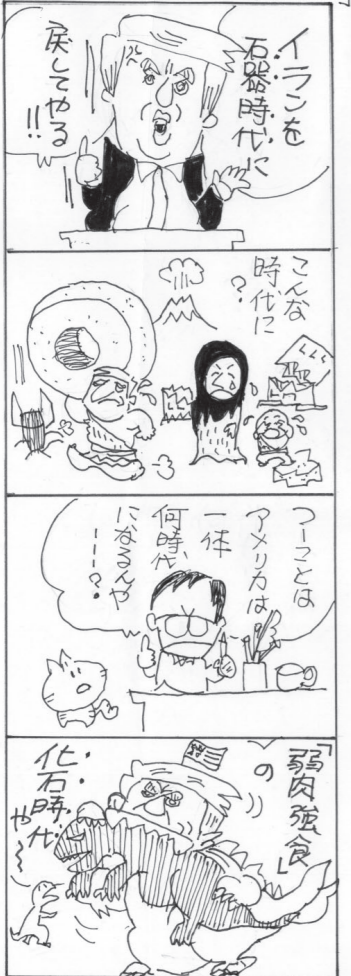 イランを
石器時代に
戻してやる
!!
こんな
時代に
?
つーことは
アメリカは
一体
何時代
になるんや
ーー?
「弱肉強食」
の
化石時代
や〜